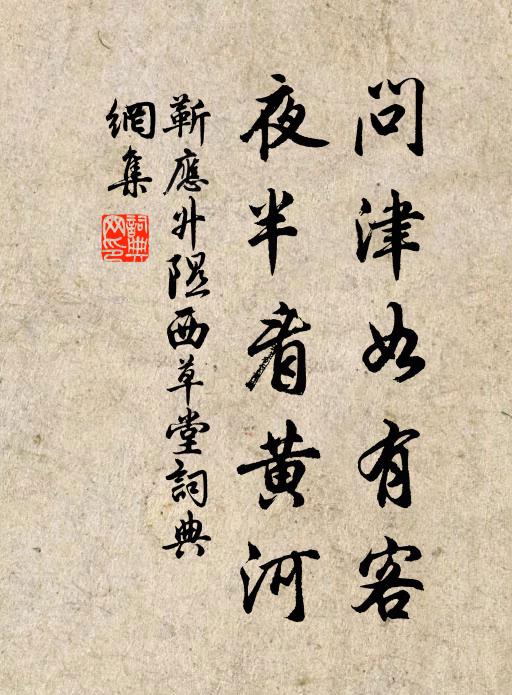 問津如有客
夜半看黃河
靳應升隰西草堂詞典
網集
詞典
网印